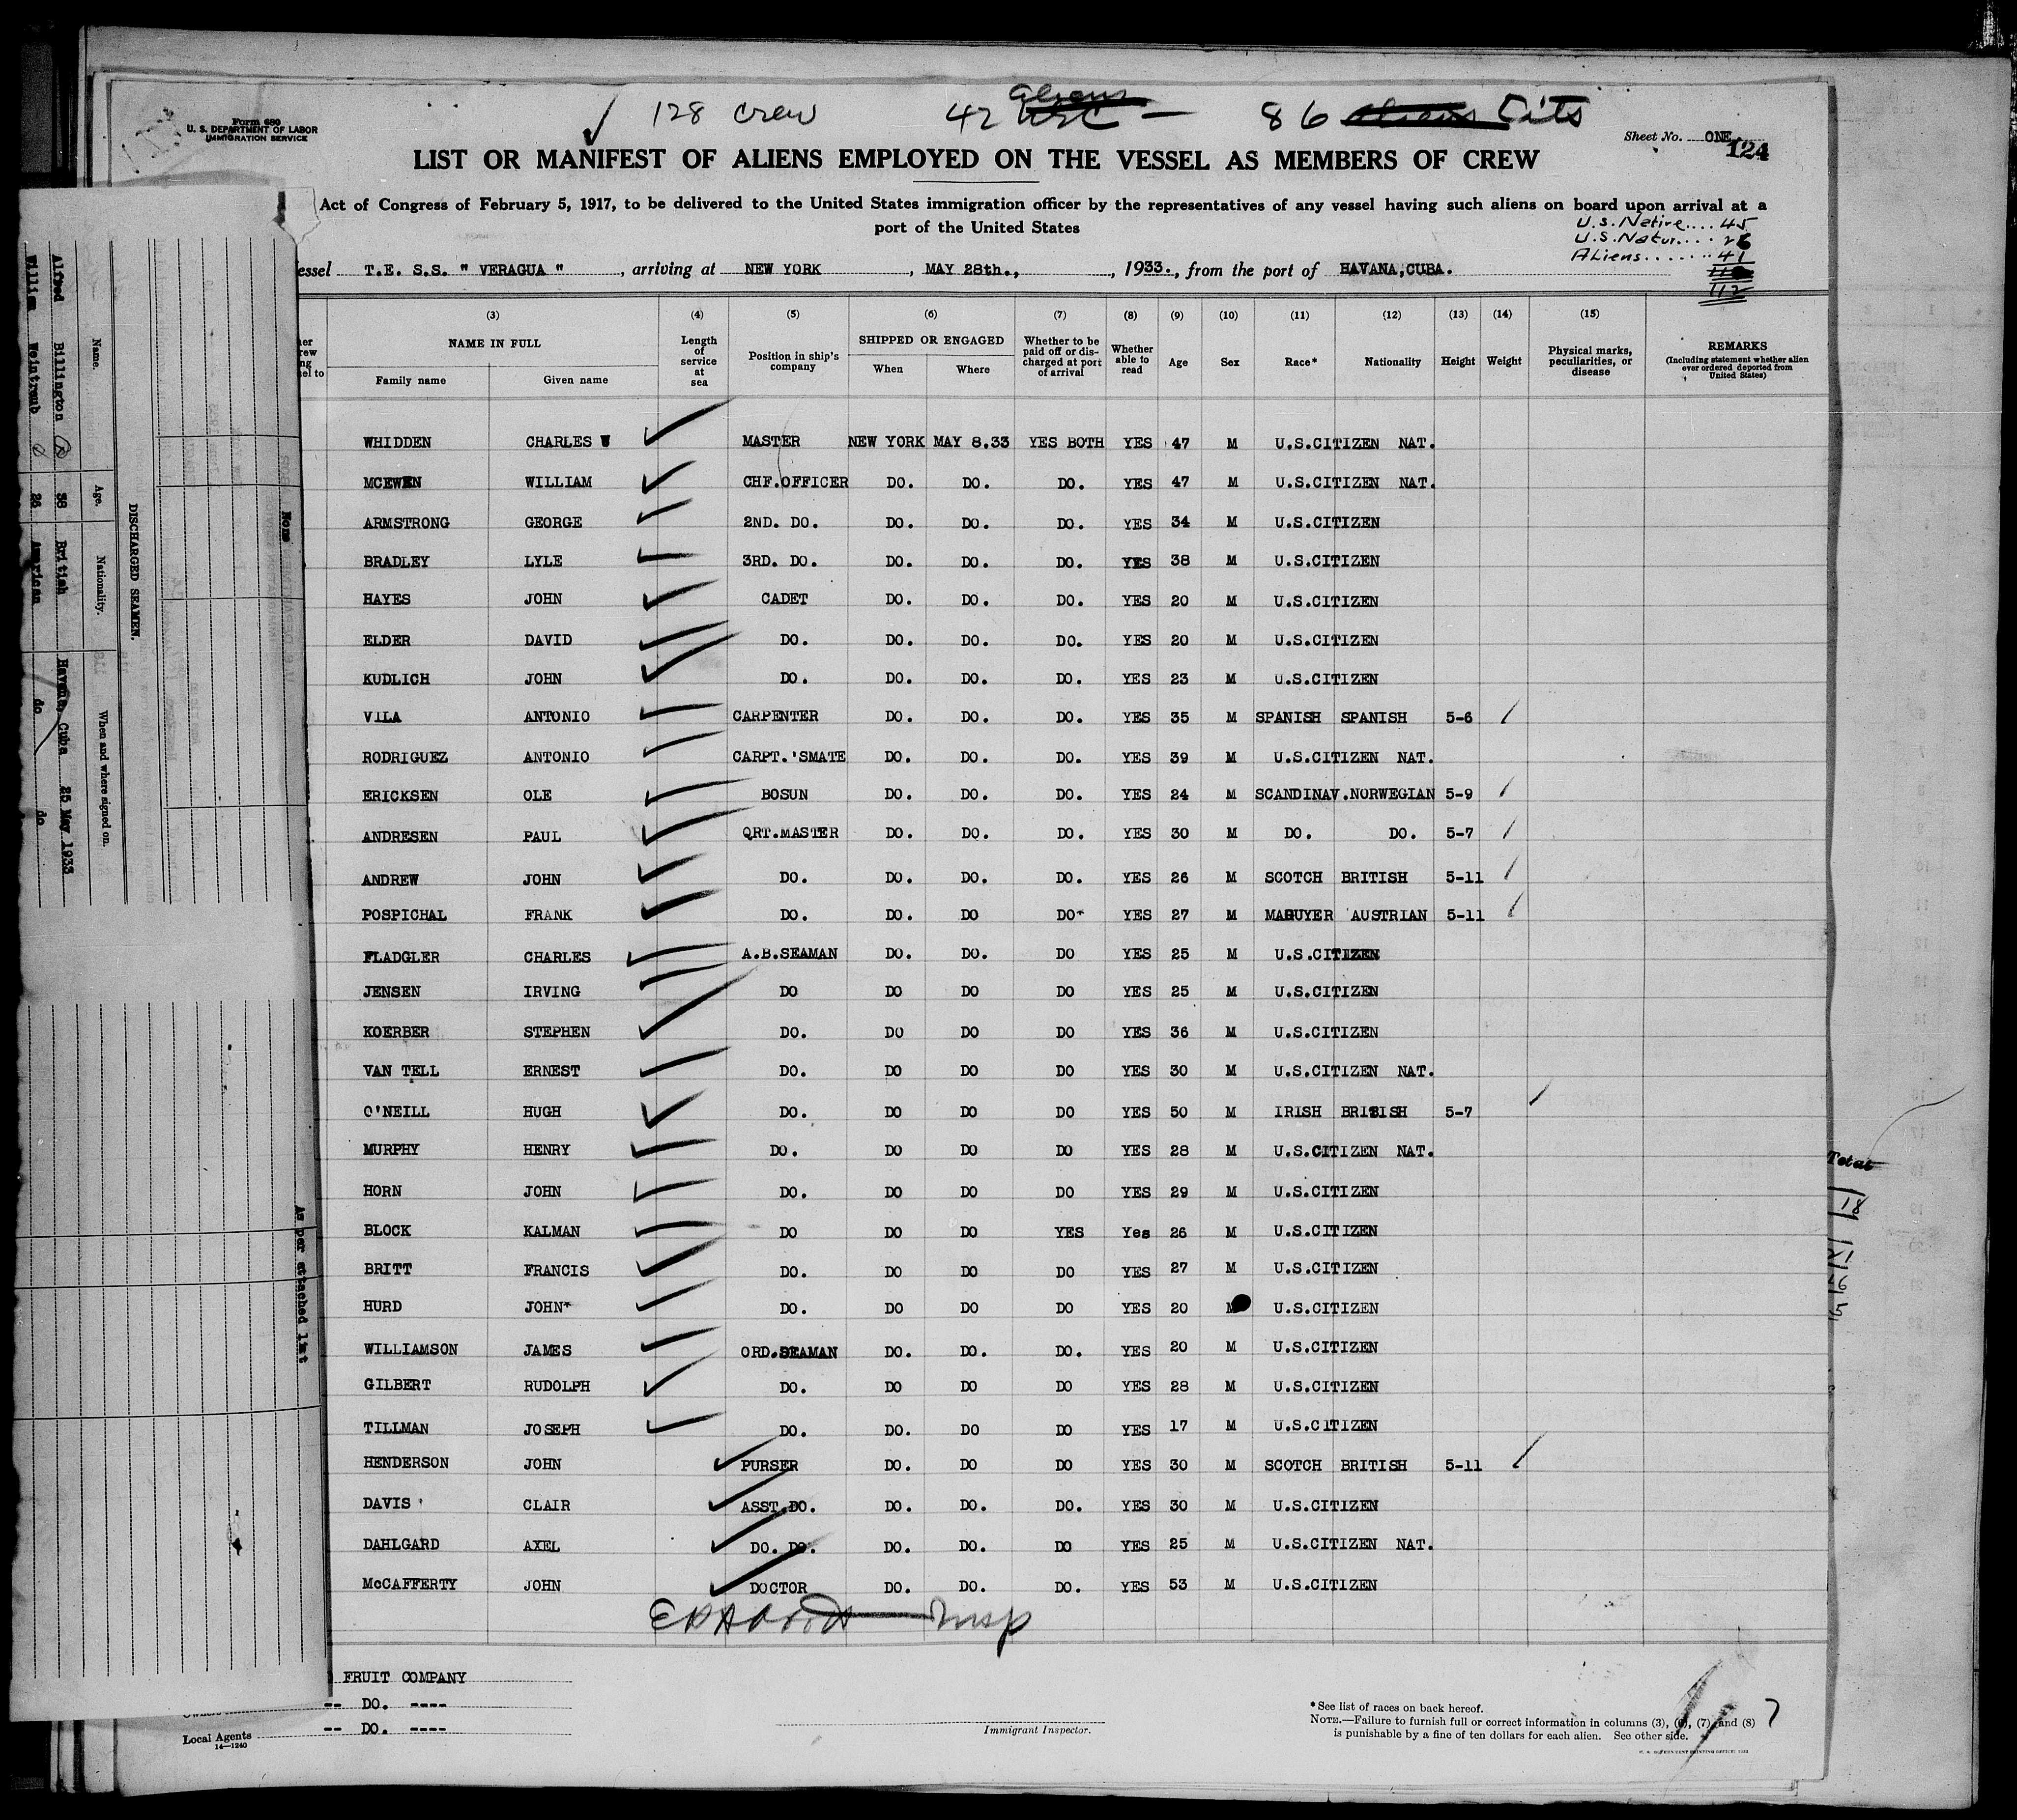 128 crew 42 Aliens — 86 Cits
Form 680
U. S. DEPARTMENT OF LABOR
IMMIGRATION SERVICE
Sheet No. ONE
124
LIST OR MANIFEST OF ALIENS EMPLOYED ON THE VESSEL AS MEMBERS OF CREW
Act of Congress of February 5, 1917, to be delivered to the United States immigration officer by the representatives of any vessel having such aliens on board upon arrival at a
port of the United States
U.S. Native.... 45
U.S. Natur....
Aliens....... 41
112
essel T.E. S.S. " VERAGUA " , arriving at NEW YORK , MAY 28th., , 1933., from the port of HAVANA,CUBA.
(3) (4) (5) (6) (7) (8) (9) (10) (11) (12) (13) (14) (15)
NAME IN FULL Length of service at sea Position in ship's company SHIPPED OR ENGAGED Whether to be paid off or discharged at port of arrival Whether able to read Age Sex Race* Nationality Height Weight Physical marks, peculiarities, or disease REMARKS (Including statement whether alien ever ordered deported from United States)
Family name Given name When Where
WHIDDEN CHARLES W MASTER NEW YORK MAY 8.33 YES BOTH YES 47 M U.S.CITIZEN NAT.
MCEWEN WILLIAM CHF.OFFICER DO. DO. DO. YES 47 M U.S.CITIZEN NAT.
ARMSTRONG GEORGE 2ND. DO. DO. DO. DO. YES 34 M U.S.CITIZEN
BRADLEY LYLE 3RD. DO. DO. DO. DO. YES 38 M U.S.CITIZEN
HAYES JOHN CADET DO. DO. DO. YES 20 M U.S.CITIZEN
ELDER DAVID DO. DO. DO. DO. YES 20 M U.S.CITIZEN
KUDLICH JOHN DO. DO. DO. DO. YES 23 M U.S.CITIZEN
VILA ANTONIO CARPENTER DO. DO. DO. YES 35 M SPANISH SPANISH 5-6
RODRIGUEZ ANTONIO CARPT.'SMATE DO. DO. DO. YES 39 M U.S.CITIZEN NAT.
ERICKSEN OLE BOSUN DO. DO. DO. YES 24 M SCANDINAV.NORWEGIAN 5-9
ANDRESEN PAUL QRT.MASTER DO. DO. DO. YES 30 M DO. DO. 5-7
ANDREW JOHN DO. DO. DO. DO. YES 26 M SCOTCH BRITISH 5-11
POSPICHAL FRANK DO. DO. DO DO YES 27 M MAGUYER AUSTRIAN 5-11
FLADGLER CHARLES A.B.SEAMAN DO. DO. DO YES 25 M U.S.CITIZEN
JENSEN IRVING DO DO DO DO YES 25 M U.S.CITIZEN
KOERBER STEPHEN DO. DO DO DO YES 36 M U.S.CITIZEN
VAN TELL ERNEST DO. DO DO DO YES 30 M U.S.CITIZEN NAT.
O'NEILL HUGH DO. DO DO DO YES 50 M IRISH BRITISH 5-7
MURPHY HENRY DO. DO DO DO YES 28 M U.S.CITIZEN NAT.
HORN JOHN DO. DO DO DO YES 29 M U.S.CITIZEN
BLOCK KALMAN DO DO DO YES Yes 26 M U.S.CITIZEN
BRITT FRANCIS DO. DO DO DO YES 27 M U.S.CITIZEN
HURD JOHN* DO. DO DO DO YES 20 M U.S.CITIZEN
WILLIAMSON JAMES ORD.SEAMAN DO. DO. DO. YES 20 M U.S.CITIZEN
GILBERT RUDOLPH DO. DO DO DO YES 28 M U.S.CITIZEN
TILLMAN JOSEPH DO. DO. DO DO YES 17 M U.S.CITIZEN
HENDERSON JOHN PURSER DO. DO DO YES 30 M SCOTCH BRITISH 5-11
DAVIS CLAIR ASST.DO. DO. DO. DO. YES 30 M U.S.CITIZEN
DAHLGARD AXEL DO. DO. DO. DO. DO YES 25 M U.S.CITIZEN NAT.
McCAFFERTY JOHN DOCTOR DO. DO. DO. YES 53 M U.S.CITIZEN
Insp
FRUIT COMPANY
-- DO. ----
Local Agents -- DO. ----
14—1240
Immigrant Inspector.
*See list of races on back hereof.
NOTE.—Failure to furnish full or correct information in columns (3), (6), (7), and (8)
is punishable by a fine of ten dollars for each alien. See other side.
7
DISCHARGED SEAMEN.
Name. Age. Nationality. When and where signed on.
Alfred Billington 38 British Havana, Cuba 25 May 1933
William Weintraub 26 American do do
None
As per attached list
Total
18
21